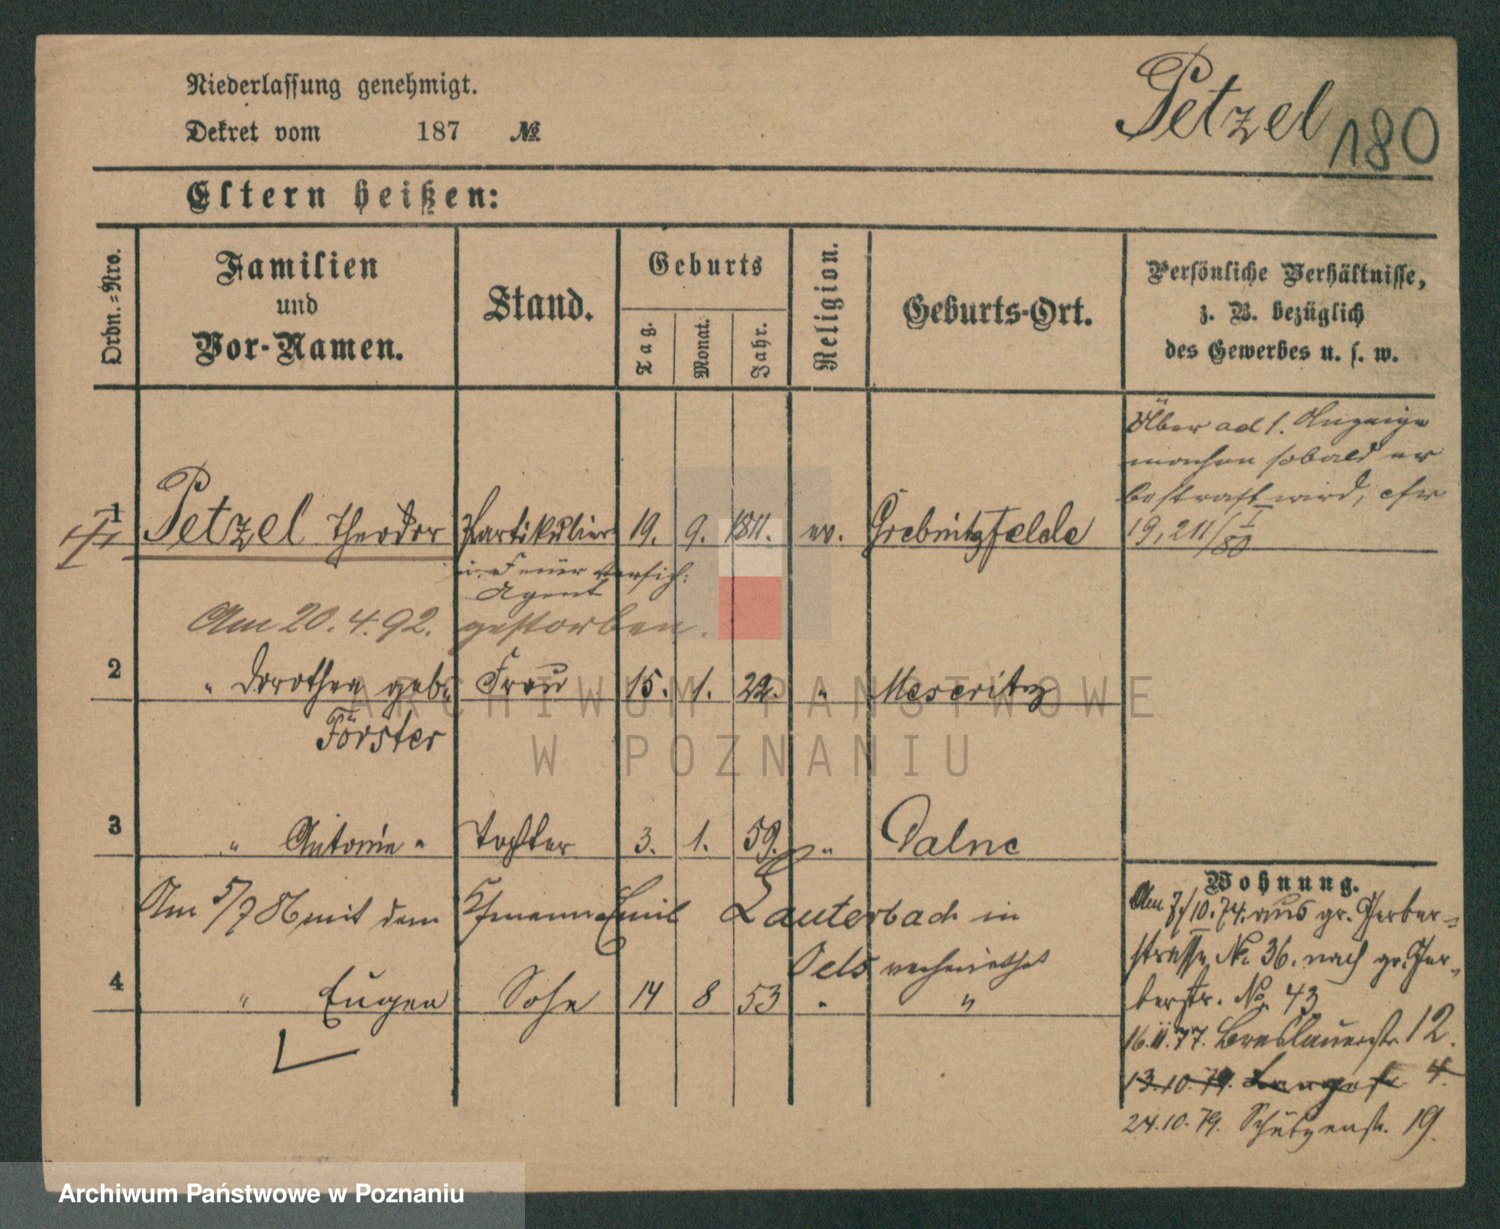 Niederlassung genehmigt.
Dekret vom 187 №
Petzel 180
Eltern heißen:
Ordn.=Nro.
Familien
und
Vor-Namen.
Stand.
Geburts
Tag.
Monat.
Jahr.
Religion.
Geburts-Ort.
Persönliche Verhältnisse,
z. B. bezüglich
des Gewerbes u. s. w.
Über ad 1. Anzeige
machen sobald er
bestraft wird, cfr
19,211/
1 Petzel Theodor Partikulier 19. 9. 1811. ev. Grebnitzfelde
u. Feuer Versich:
Agent
Am 20.4.92. gestorben.
2 " Dorothea geb. Frau 15. 1. 22. " Meseritz
Förster
3 " Antonie " Tochter 3. 1. 59. " Dalne
Am 5/7 86 mit dem Kfmann Emil Lauterbach in
Oels verheirathet
4 " Eugen Sohn 14 8 53 " "
Wohnung.
Am 7/10.74. aus gr. Gerber-
strasse No 36. nach gr. Ger-
berstr. No 43
16.11.77. Breslauerstr. 12.
13.10.79. Langestr 4.
24.10.79. Schützenstr. 19.
ARCHIWUM PAŃSTWOWE
W POZNANIU
Archiwum Państwowe w Poznaniu